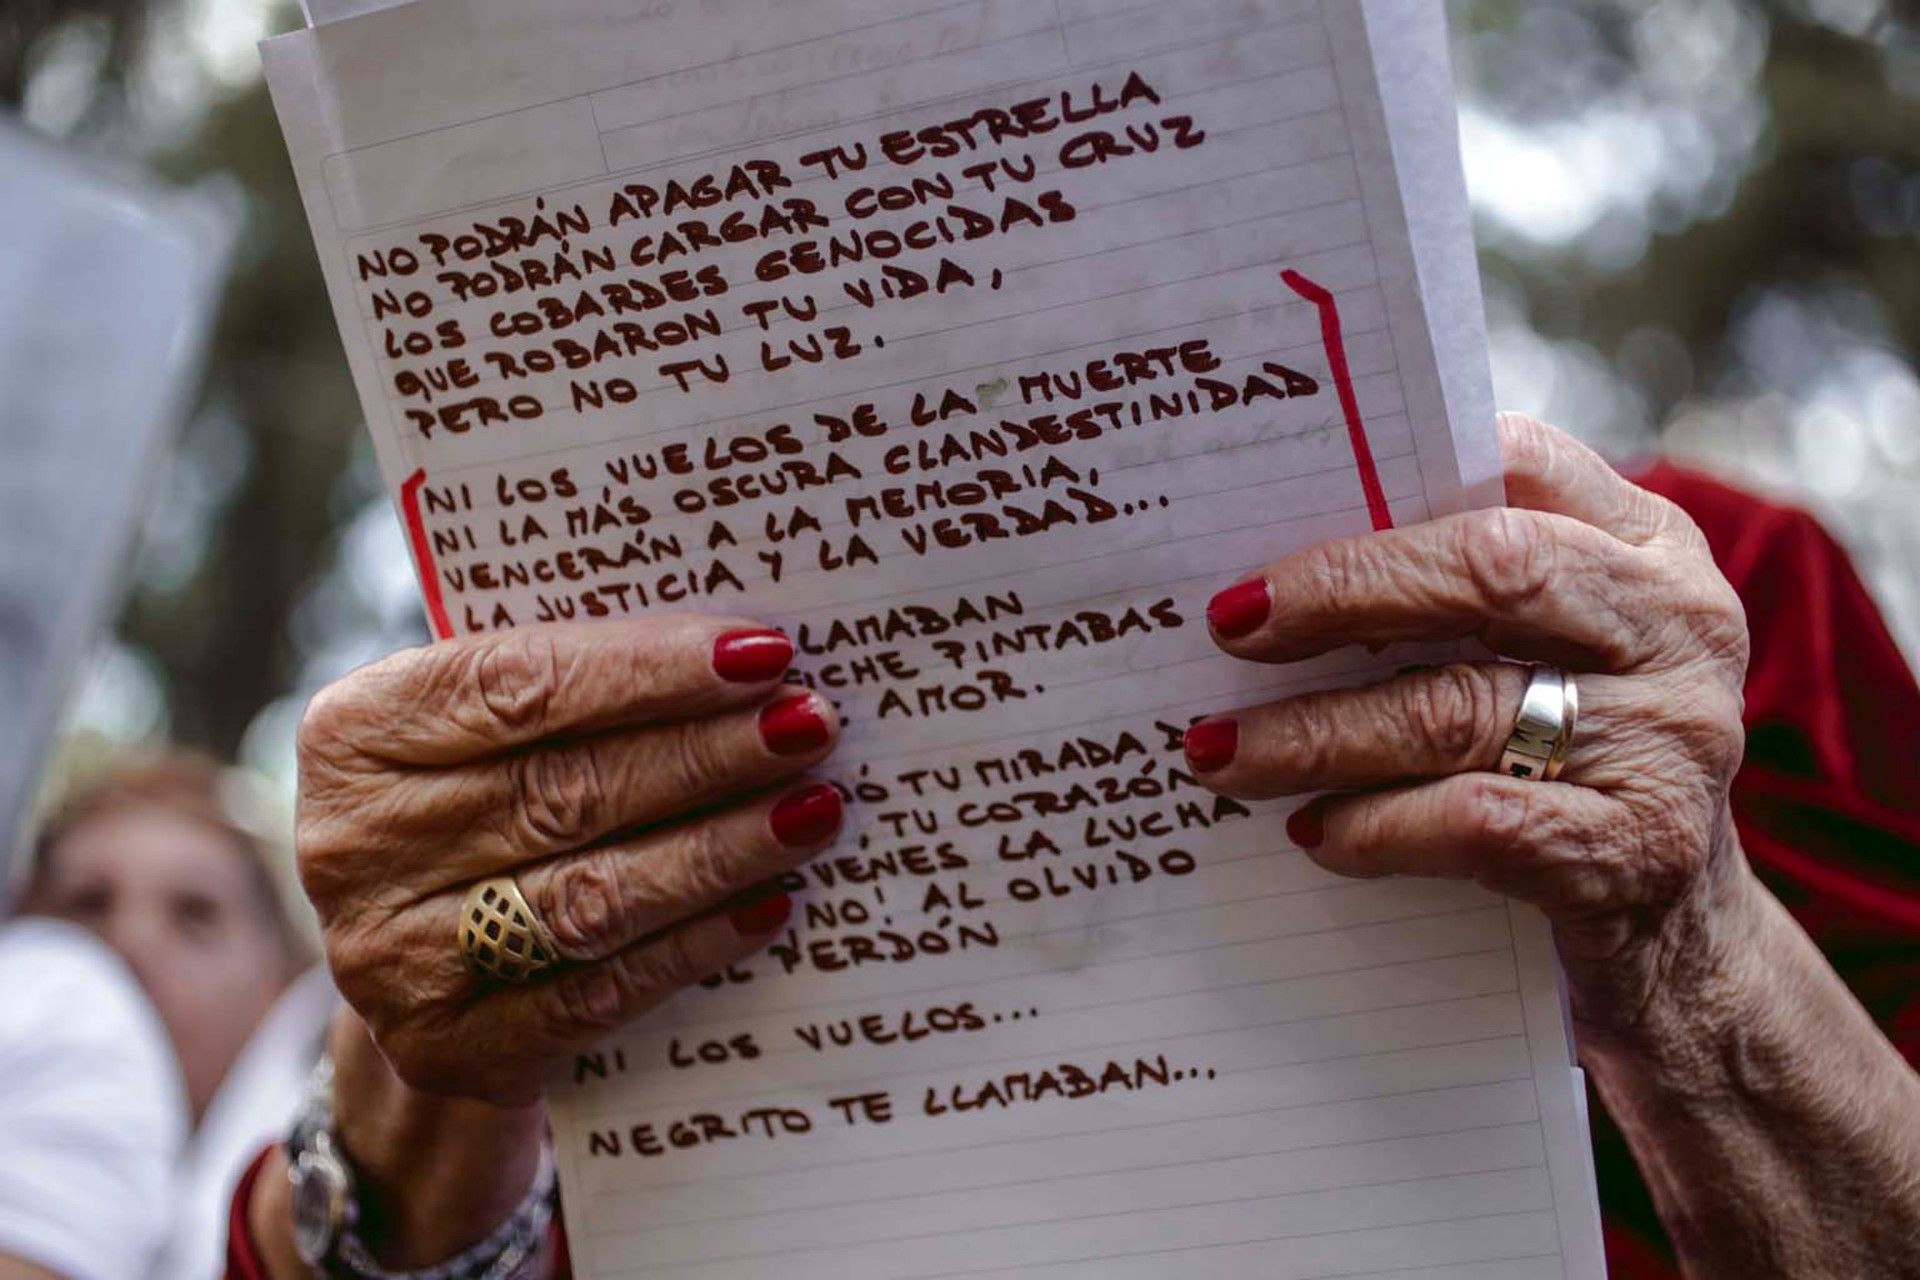 NO PODRÁN APAGAR TU ESTRELLA
NO PODRÁN CARGAR CON TU CRUZ
LOS COBARDES GENOCIDAS
QUE ROBARON TU VIDA,
PERO NO TU LUZ.
NI LOS VUELOS DE LA MUERTE
NI LA MÁS OSCURA CLANDESTINIDAD
VENCERÁN A LA MEMORIA,
LA JUSTICIA Y LA VERDAD...
LLAMABAN
PINTABAS
AMOR.
TU MIRADA
, TU CORAZÓN
LA LUCHA
NO! AL OLVIDO
PERDÓN
NI LOS VUELOS...
NEGRITO TE LLAMABAN...